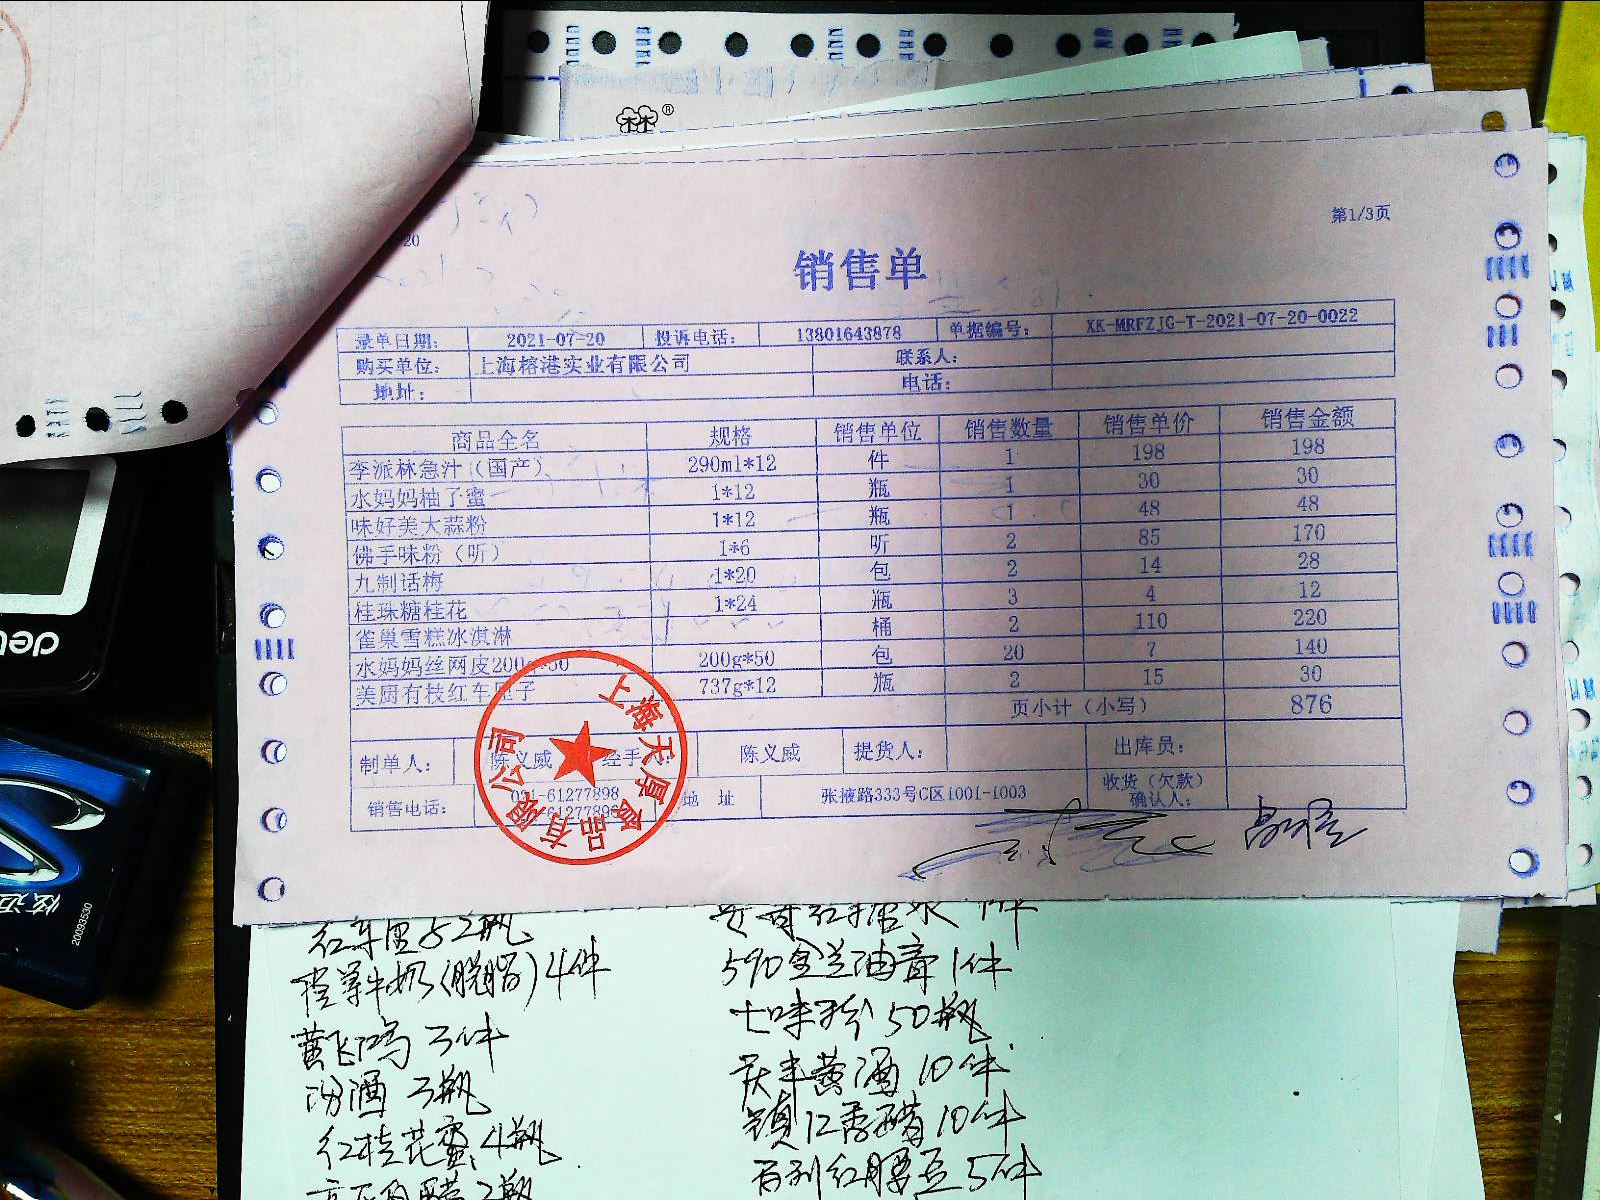 林林®
20
第1/3页
销售单
录单日期： 2021-07-20 投诉电话： 13801643878 单据编号： XK-MRFZJG-T-2021-07-20-0022
购买单位： 上海榕港实业有限公司 联系人：
地址： 电话：
商品全名 规格 销售单位 销售数量 销售单价 销售金额
李派林急汁（国产） 290ml*12 件 1 198 198
水妈妈柚子蜜 1*12 瓶 1 30 30
味好美大蒜粉 1*12 瓶 1 48 48
佛手味粉（听） 1*6 听 2 85 170
九制话梅 1*20 包 2 14 28
桂珠糖桂花 1*24 瓶 3 4 12
雀巢雪糕冰淇淋 桶 2 110 220
水妈妈丝网皮200g*50 200g*50 包 20 7 140
美厨有枝红车厘子 737g*12 瓶 2 15 30
页小计（小写） 876
制单人： 陈义威 经手人： 陈义威 提货人： 出库员：
销售电话： 021-61277898 地 址 张掖路333号C区1001-1003 收货（欠款）确认人：
61277896
上海天厚食品有限公司
deli
炫迈
20093530
红车厘子2瓶
牛奶(脱脂)4件
黄飞鸿 3件
汾酒 3瓶
红桂花蜜 4瓶
590金兰油膏 1件
七味粉 50瓶
黄酒 10件
镇江香醋 10件
百利红腰豆 5件